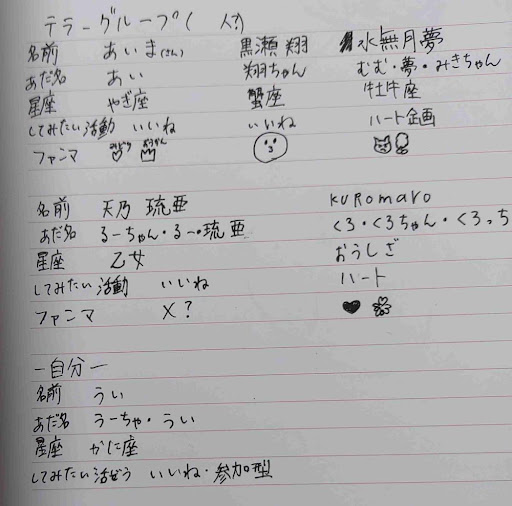 テラーグループ( 人?)
名前 あいま(さん) 黒瀬 翔 水無月夢
あだ名 あい 翔ちゃん むむ・夢・みきちゃん
星座 やぎ座 蟹座 牡牛座
してみたい活動 いいね いいね ハート企画
ファンマ みどり おうかん
名前 天乃 琉亜 kuromaro
あだ名 るーちゃん・るー・琉亜 くろ・くろちゃん・くろっち
星座 乙女 おうしざ
してみたい活動 いいね ハート
ファンマ ×?
ー自分ー
名前 うい
あだ名 うーちゃ・うい
星座 かに座
してみたい活どう いいね・参加型